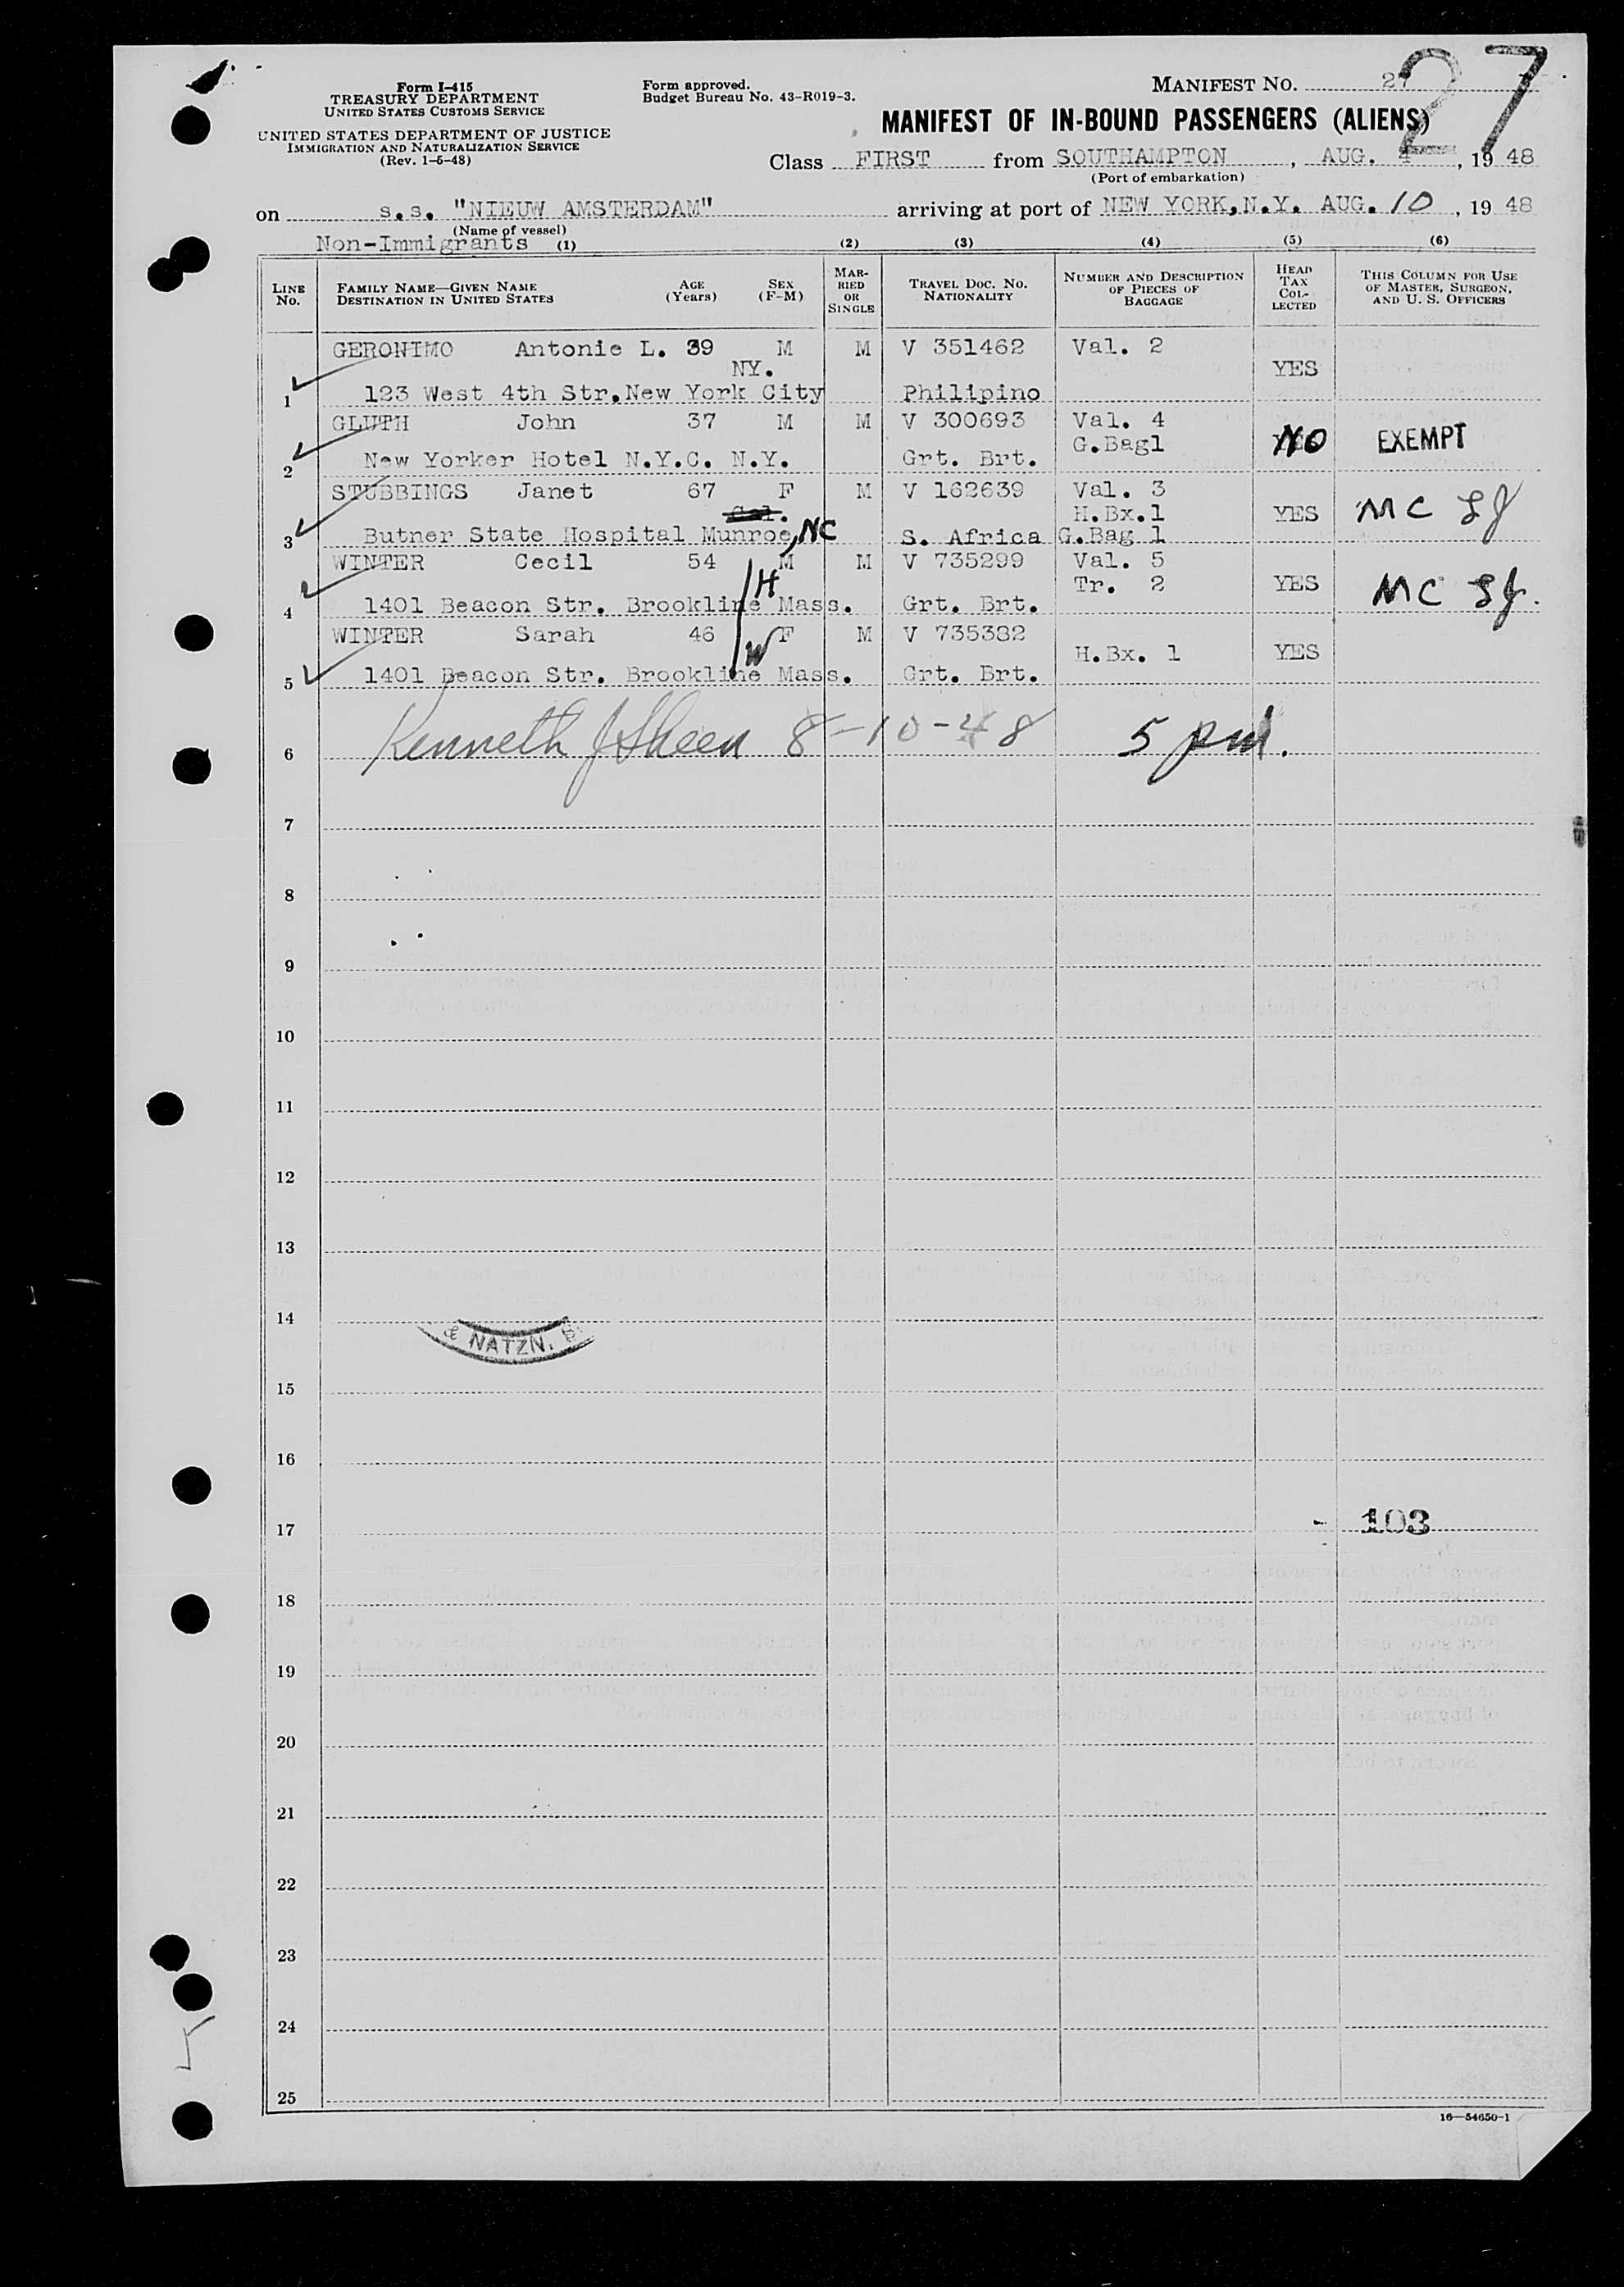 Form I-415
TREASURY DEPARTMENT
UNITED STATES CUSTOMS SERVICE
UNITED STATES DEPARTMENT OF JUSTICE
IMMIGRATION AND NATURALIZATION SERVICE
(Rev. 1-5-48)
Form approved.
Budget Bureau No. 43-R019-3.
MANIFEST NO. 27
27
MANIFEST OF IN-BOUND PASSENGERS (ALIENS)
Class FIRST from SOUTHAMPTON, AUG. 4, 1948
(Port of embarkation)
on s.s. "NIEUW AMSTERDAM" arriving at port of NEW YORK, N.Y. AUG. 10, 1948
(Name of vessel)
Non-Immigrants (1) (2) (3) (4) (5) (6)
LINE No. FAMILY NAME—GIVEN NAME DESTINATION IN UNITED STATES AGE (Years) SEX (F-M) MARRIED OR SINGLE TRAVEL DOC. NO. NATIONALITY NUMBER AND DESCRIPTION OF PIECES OF BAGGAGE HEAD TAX COLLECTED THIS COLUMN FOR USE OF MASTER, SURGEON, AND U. S. OFFICERS
GERONIMO Antonie L. 39 M M V 351462 Val. 2
NY. YES
1 123 West 4th Str. New York City Philipino
GLUTH John 37 M M V 300693 Val. 4
G.Bag1 NO EXEMPT
2 New Yorker Hotel N.Y.C. N.Y. Grt. Brt.
STUBBINGS Janet 67 F M V 162639 Val. 3
Cal. H.Bx.1 YES MC
3 Butner State Hospital Munroe, NC S. Africa G.Bag 1
WINTER Cecil 54 M M V 735299 Val. 5
H Tr. 2 YES MC
4 1401 Beacon Str. Brookline Mass. Grt. Brt.
WINTER Sarah 46 F M V 735382
W H.Bx. 1 YES
5 1401 Beacon Str. Brookline Mass. Grt. Brt.
6 Kenneth J Sheen 8-10-48 5 pm.
7
8
9
10
11
12
13
14
& NATZN. S
15
16
17 103
18
19
20
21
22
23
24
25
16—54650-1